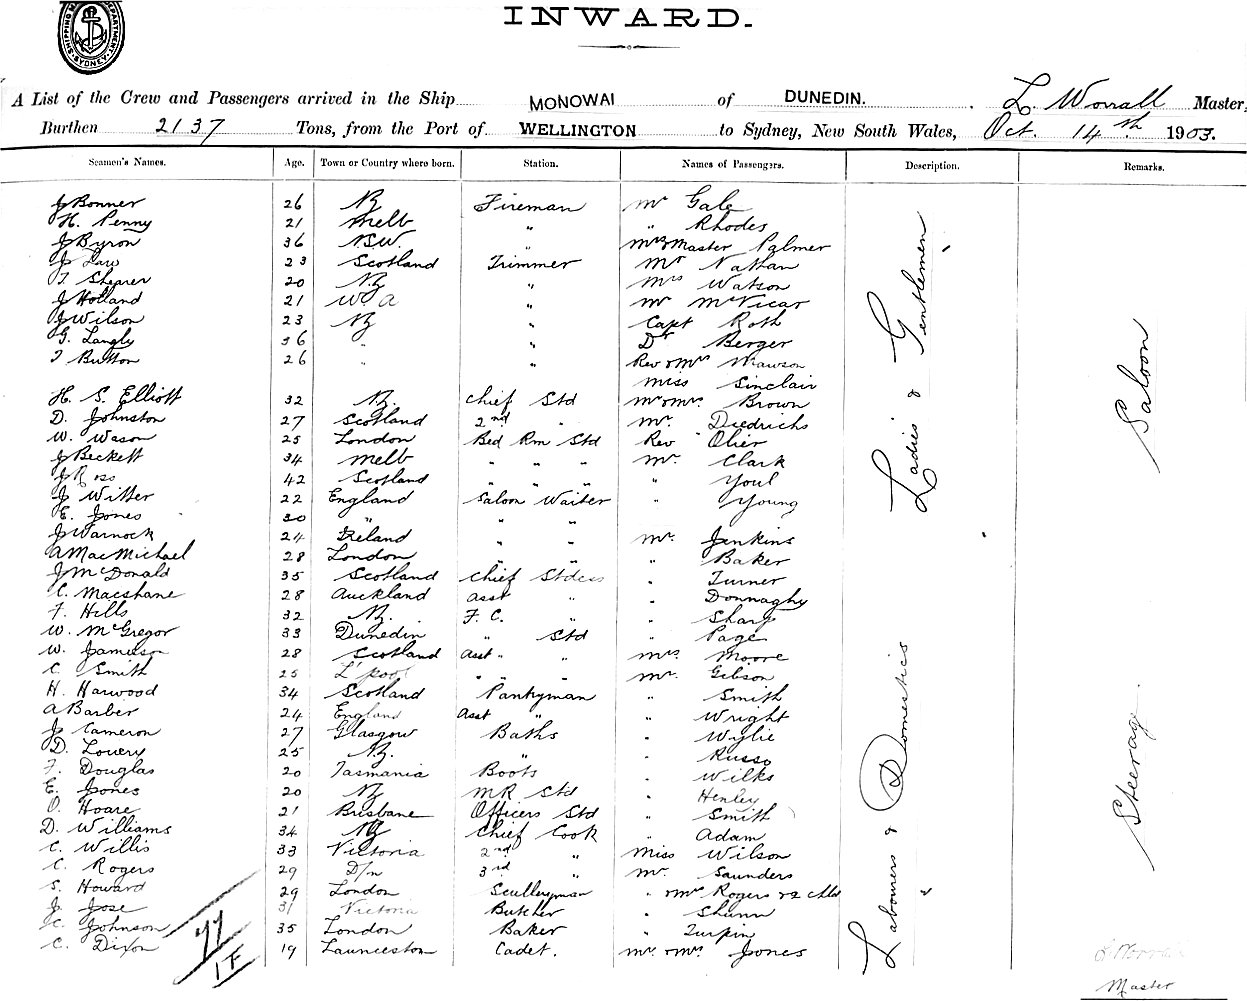 SHIPPING MASTER'S DEPARTMENT. SYDNEY
INWARD.
A List of the Crew and Passengers arrived in the Ship MONOWAI of DUNEDIN. L. Worrall Master,
Burthen 2137 Tons, from the Port of WELLINGTON to Sydney, New South Wales, Oct. 14th 1903.
Seamen's Names. Age. Town or Country where born. Station. Names of Passengers. Description. Remarks.
J Bonner 26 NZ Fireman Mr Gale
H. Penny 21 Melb " " Rhodes
J Byron 36 NSW. " Mrs & Master Palmer
J Law 23 Scotland Trimmer Mr Nathan
T Shearer 20 NZ " Mrs Watson
J Holland 21 W. A " Mr McVicar
J Wilson 23 NZ " Capt Roth
G. Langly 36 " " Dr Berger
T Button 26 " " Rev & Mrs Mawson
Miss Sinclair
H. S. Elliott 32 NZ. Chief Std Mr & Mrs Brown
D. Johnston 27 Scotland 2nd " Mr. Diedrichs
W. Wason 25 London Bed Rm Std Rev Olier
J Beckett 34 Melb " " " Mr. Clark
J Ross 42 Scotland " " " " Youl
J Witter 22 England Saloon Waiter " Young
E. Jones 30 " " "
J Warnock 24 Ireland " " Mr. Jenkins
A MacMichael 28 London " " " Baker
J McDonald 35 Scotland Chief Stdess " Turner
C. Macshane 28 Auckland Asst " " Donnaghy
F. Hills 32 NZ. F. C. " " Sharp
W. McGregor 33 Dunedin " Std " Page
W. Jamieson 28 Scotland Asst " " Mrs. Moore
C. Smith 25 L'pool " " " Mr. Gibson
H. Harwood 34 Scotland Pantryman " Smith
A Barber 24 England Asst " " Wright
J Cameron 27 Glasgow Baths " Wylie
D. Lowery 25 NZ. " " Russo
F. Douglas 20 Tasmania Boots " Wilks
E. Jones 20 NZ MR Std " Henley
O. Hoare 21 Brisbane Officers Std " Smith
D. Williams 34 NZ Chief Cook " Adam
C. Willis 33 Victoria 2nd " Miss Wilson
C. Rogers 29 D/n 3rd " Mr. Saunders
S. Howard 29 London Sculleryman " & Mrs Rogers & 2 chld
J. Jose 31 Victoria Butcher " Shunn
C. Johnson 35 London Baker " Turpin
C. Dixon 19 Launceston Cadet. Mr. & Mrs. Jones
Ladies & Gentlemen
Labourers & Domestics
Saloon
Steerage
77
1F
L. Worrall
Master